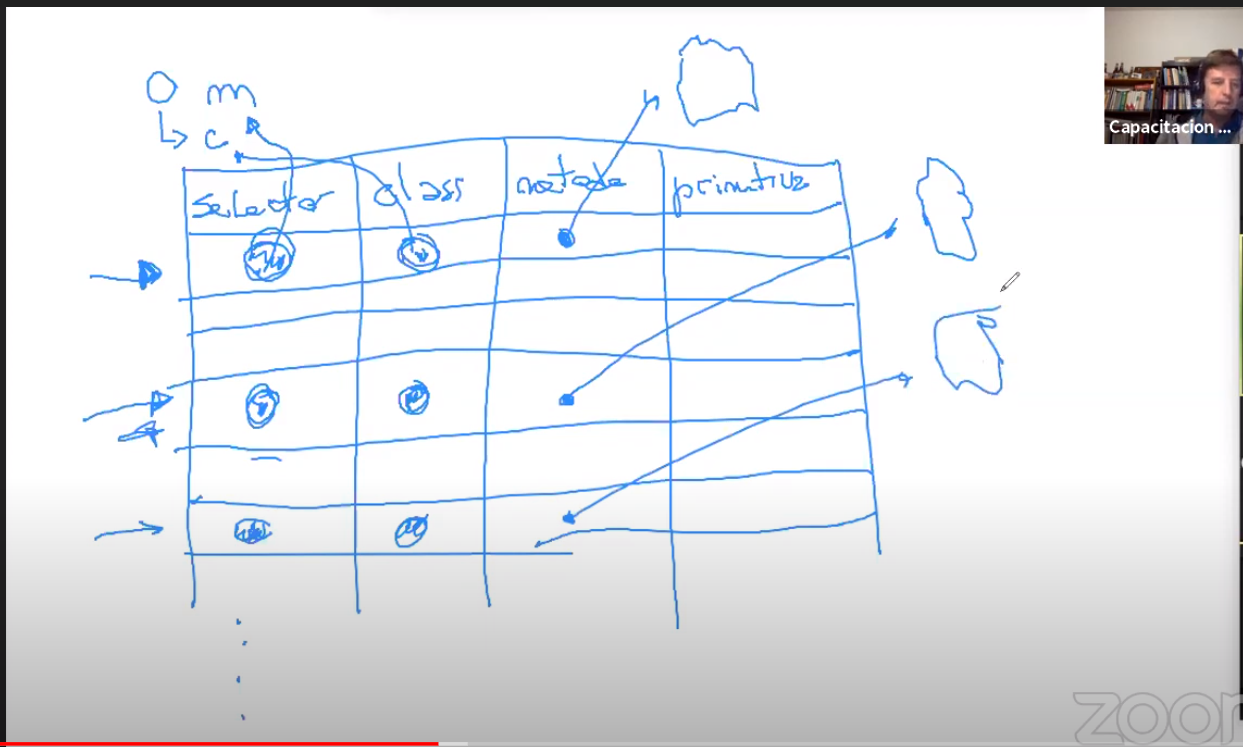 O m
↳ c
selector class metodo primitiva
Capacitacion ...
zoom